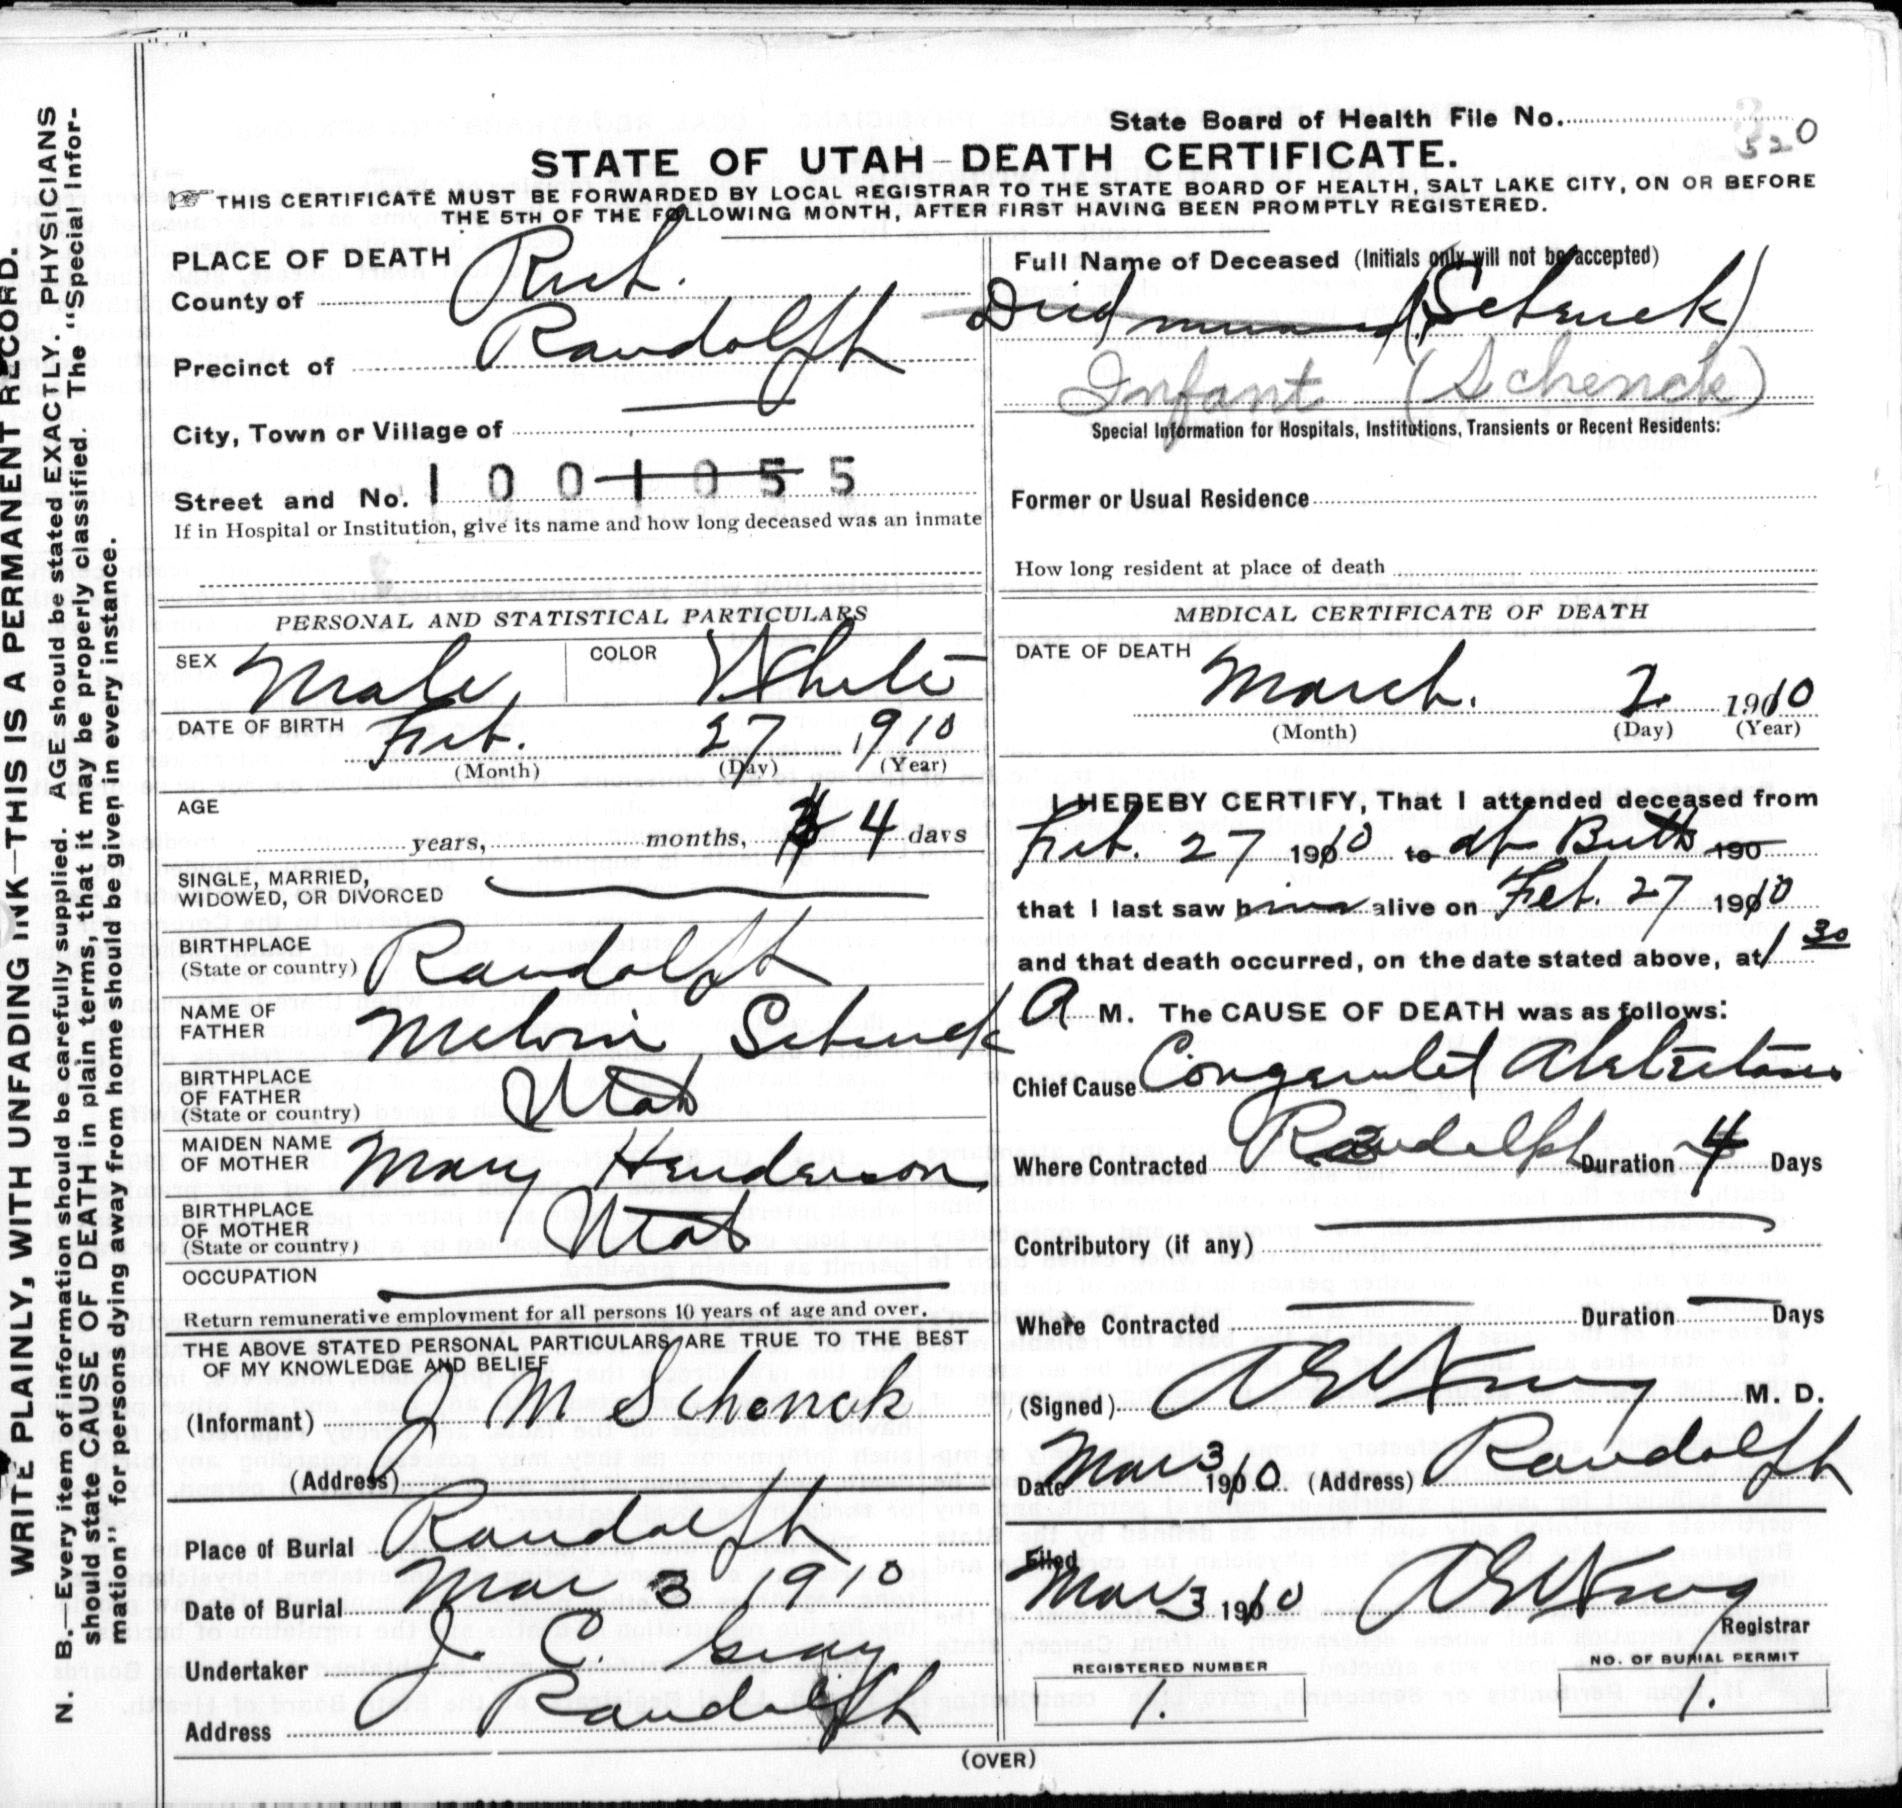 WRITE PLAINLY, WITH UNFADING INK—THIS IS A PERMANENT RECORD.
N. B.—Every item of information should be carefully supplied. AGE should be stated EXACTLY. PHYSICIANS
should state CAUSE OF DEATH in plain terms, that it may be properly classified. The "Special Infor-
mation" for persons dying away from home should be given in every instance.
State Board of Health File No. 320
STATE OF UTAH—DEATH CERTIFICATE.
THIS CERTIFICATE MUST BE FORWARDED BY LOCAL REGISTRAR TO THE STATE BOARD OF HEALTH, SALT LAKE CITY, ON OR BEFORE
THE 5TH OF THE FOLLOWING MONTH, AFTER FIRST HAVING BEEN PROMPTLY REGISTERED.
PLACE OF DEATH
County of Rich.
Precinct of Randolph
City, Town or Village of
Street and No. 1001055
If in Hospital or Institution, give its name and how long deceased was an inmate
Full Name of Deceased (Initials only will not be accepted)
Died (Schenck)
Infant (Schenck)
Special Information for Hospitals, Institutions, Transients or Recent Residents:
Former or Usual Residence
How long resident at place of death
PERSONAL AND STATISTICAL PARTICULARS
SEX Male COLOR White
DATE OF BIRTH Feb. 27 1910
(Month) (Day) (Year)
AGE
years, months, 4 days
SINGLE, MARRIED,
WIDOWED, OR DIVORCED
BIRTHPLACE
(State or country) Randolph
NAME OF
FATHER Melvin Schenck
BIRTHPLACE
OF FATHER
(State or country) Utah
MAIDEN NAME
OF MOTHER Mary Henderson
BIRTHPLACE
OF MOTHER
(State or country) Utah
OCCUPATION
Return remunerative employment for all persons 10 years of age and over.
THE ABOVE STATED PERSONAL PARTICULARS ARE TRUE TO THE BEST
OF MY KNOWLEDGE AND BELIEF
(Informant) J M Schenck
(Address)
Place of Burial Randolph
Date of Burial Mar 3 1910
Undertaker J. C. Gray
Address Randolph
MEDICAL CERTIFICATE OF DEATH
DATE OF DEATH
March. 2 1910
(Month) (Day) (Year)
I HEREBY CERTIFY, That I attended deceased from
Feb. 27 1910 to at Birth 190
that I last saw him alive on Feb. 27 1910
and that death occurred, on the date stated above, at 1 30
A M. The CAUSE OF DEATH was as follows:
Chief Cause
Where Contracted Randolph Duration 4 Days
Contributory (if any)
Where Contracted Duration Days
(Signed) M. D.
Date Mar 3 1910 (Address) Randolph
Filed
Mar 3 1910
Registrar
REGISTERED NUMBER
1.
NO. OF BURIAL PERMIT
1.
(OVER)